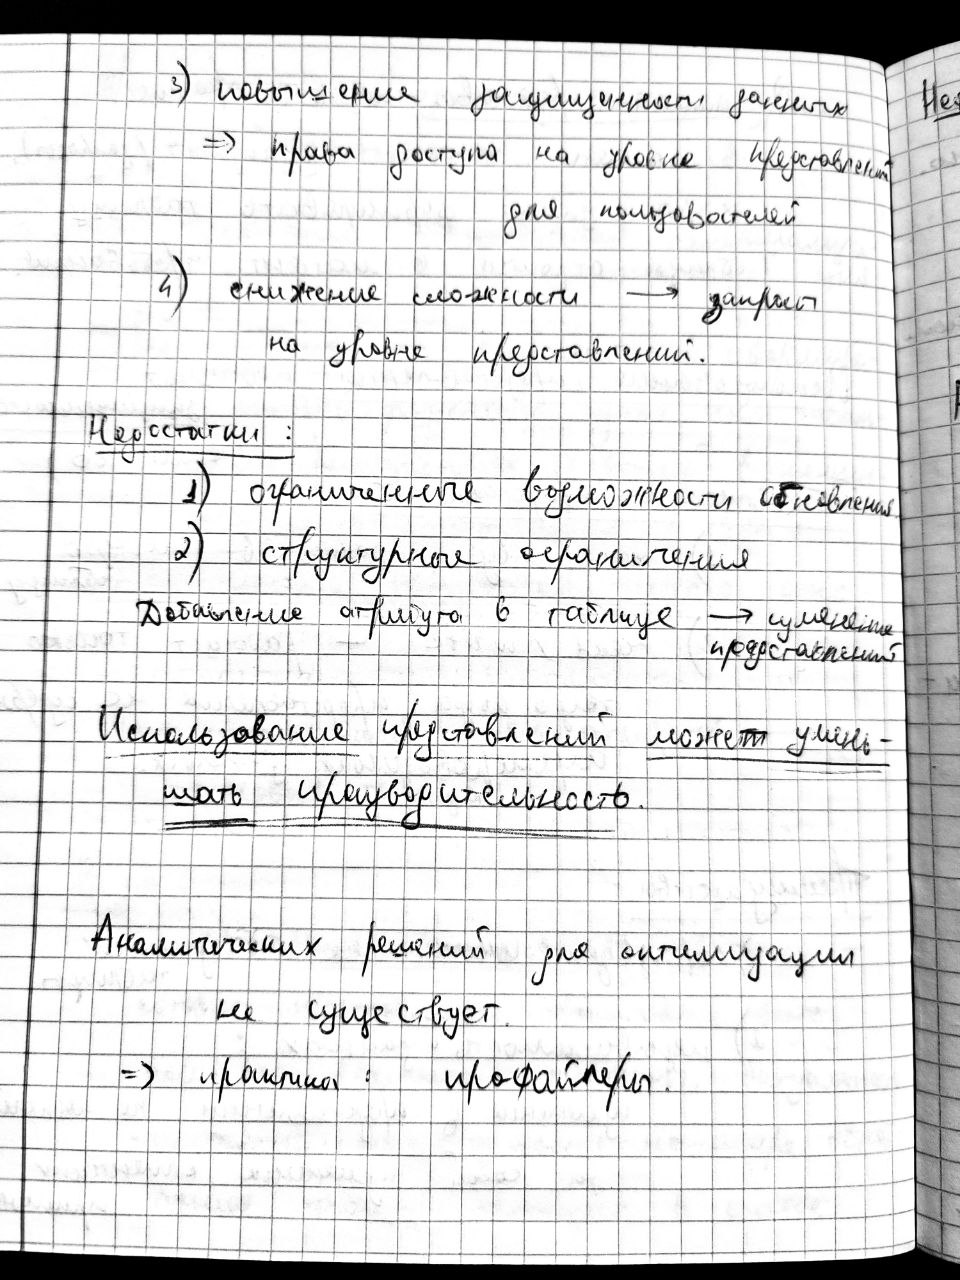 3) повышение защищенности данных
=> права доступа на уровне представлений
для пользователей
4) снижение сложности → запросы
на уровне представлений.
Недостатки:
1) ограниченные возможности обновления
2) структурные ограничения
Добавление атрибута в таблице →
представлений
Использование представлений может умень-
шать производительность.
Аналитических решений для оптимизации
не существует.
=> практика: профайлеры.